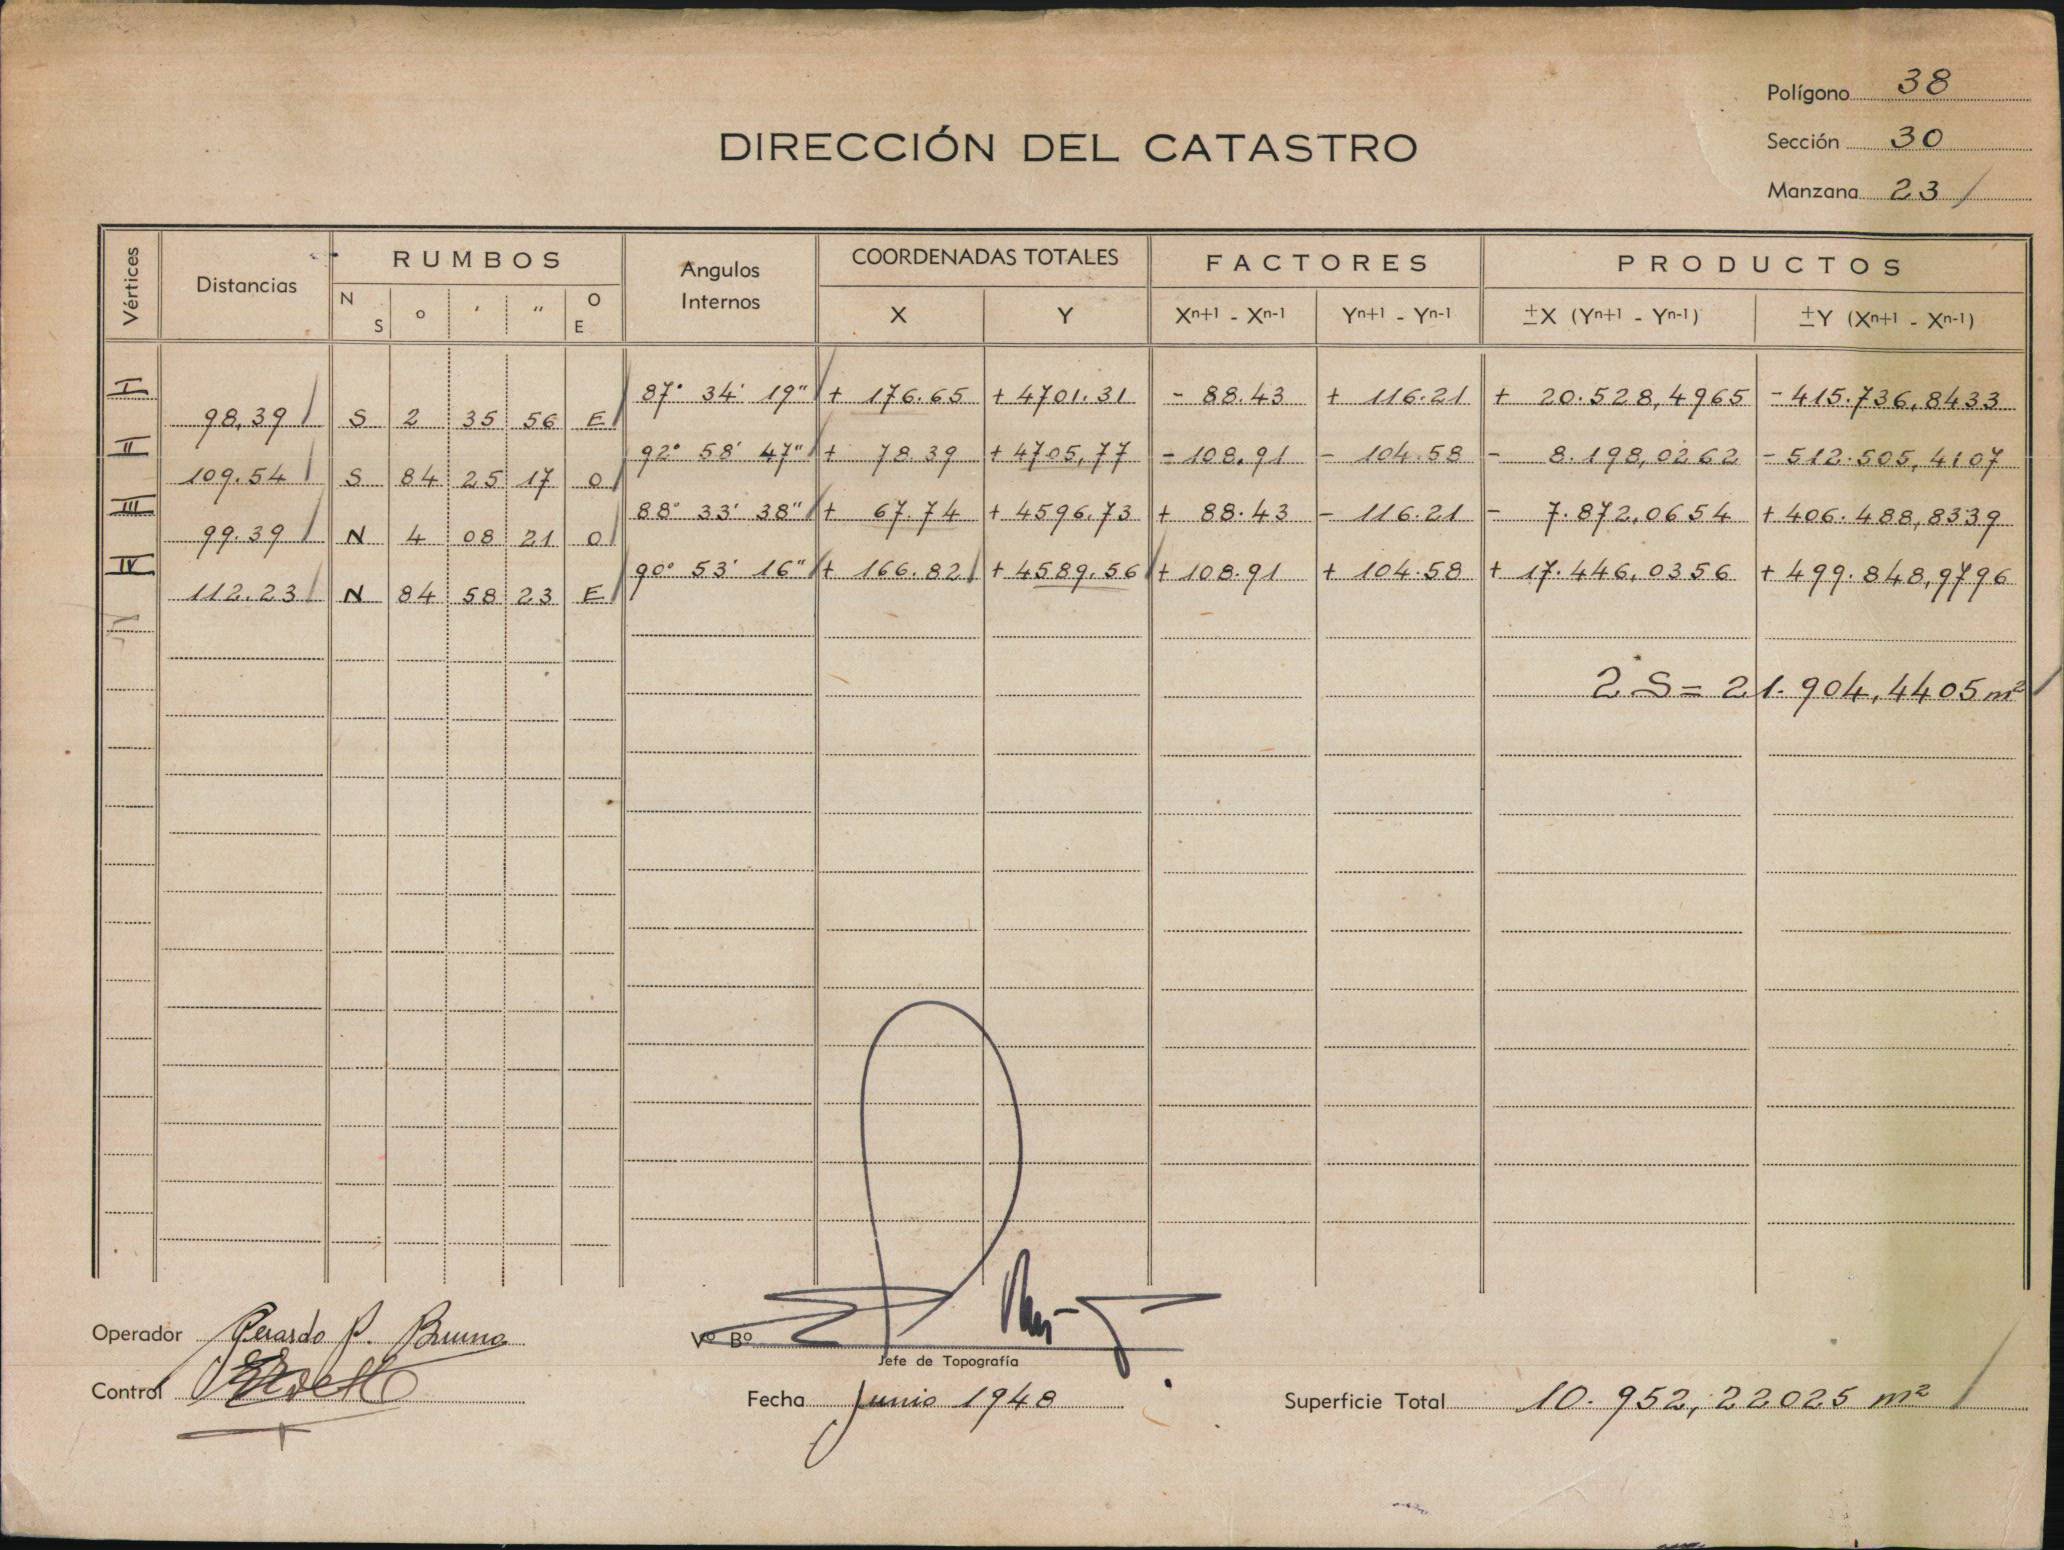 Polígono 38
DIRECCIÓN DEL CATASTRO
Sección 30
Manzana 23
Vértices Distancias RUMBOS Angulos Internos COORDENADAS TOTALES FACTORES PRODUCTOS
N S o ′ ″ O E X Y Xn+1 - Xn-1 Yn+1 - Yn-1 ±X (Yn+1 - Yn-1) ±Y (Xn+1 - Xn-1)
I 87° 34' 19" + 176.65 + 4701.31 - 88.43 + 116.21 + 20.528,4965 - 415.736,8433
98,39 S 2 35 56 E
II 92° 58' 47" + 78.39 + 4705,77 - 108.91 - 104.58 - 8.198,0262 - 512.505,4107
109.54 S 84 25 17 O
III 88° 33' 38" + 67.74 + 4596.73 + 88.43 - 116.21 - 7.872,0654 + 406.488,8339
99.39 N 4 08 21 O
IV 90° 53' 16" + 166.82 + 4589.56 + 108.91 + 104.58 + 17.446,0356 + 499.848,9796
112.23 N 84 58 23 E
2 S = 21.904,4405 m²
Operador Gerardo P. Bruno
Vº Bº
Jefe de Topografía
Control
Fecha Junio 1948
Superficie Total 10.952,22025 m²